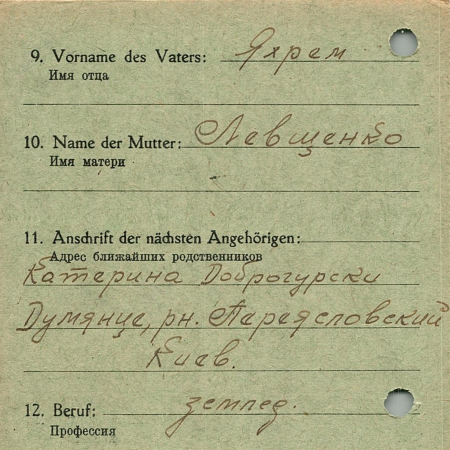 9. Vorname des Vaters: Яхрем
Имя отца
10. Name der Mutter: Левщенко
Имя матери
11. Anschrift der nächsten Angehörigen:
Адрес ближайших родственников
Катерина Доброгурски
Думянце, рн. Переясловский
Киев.
12. Beruf: землед.
Профессия